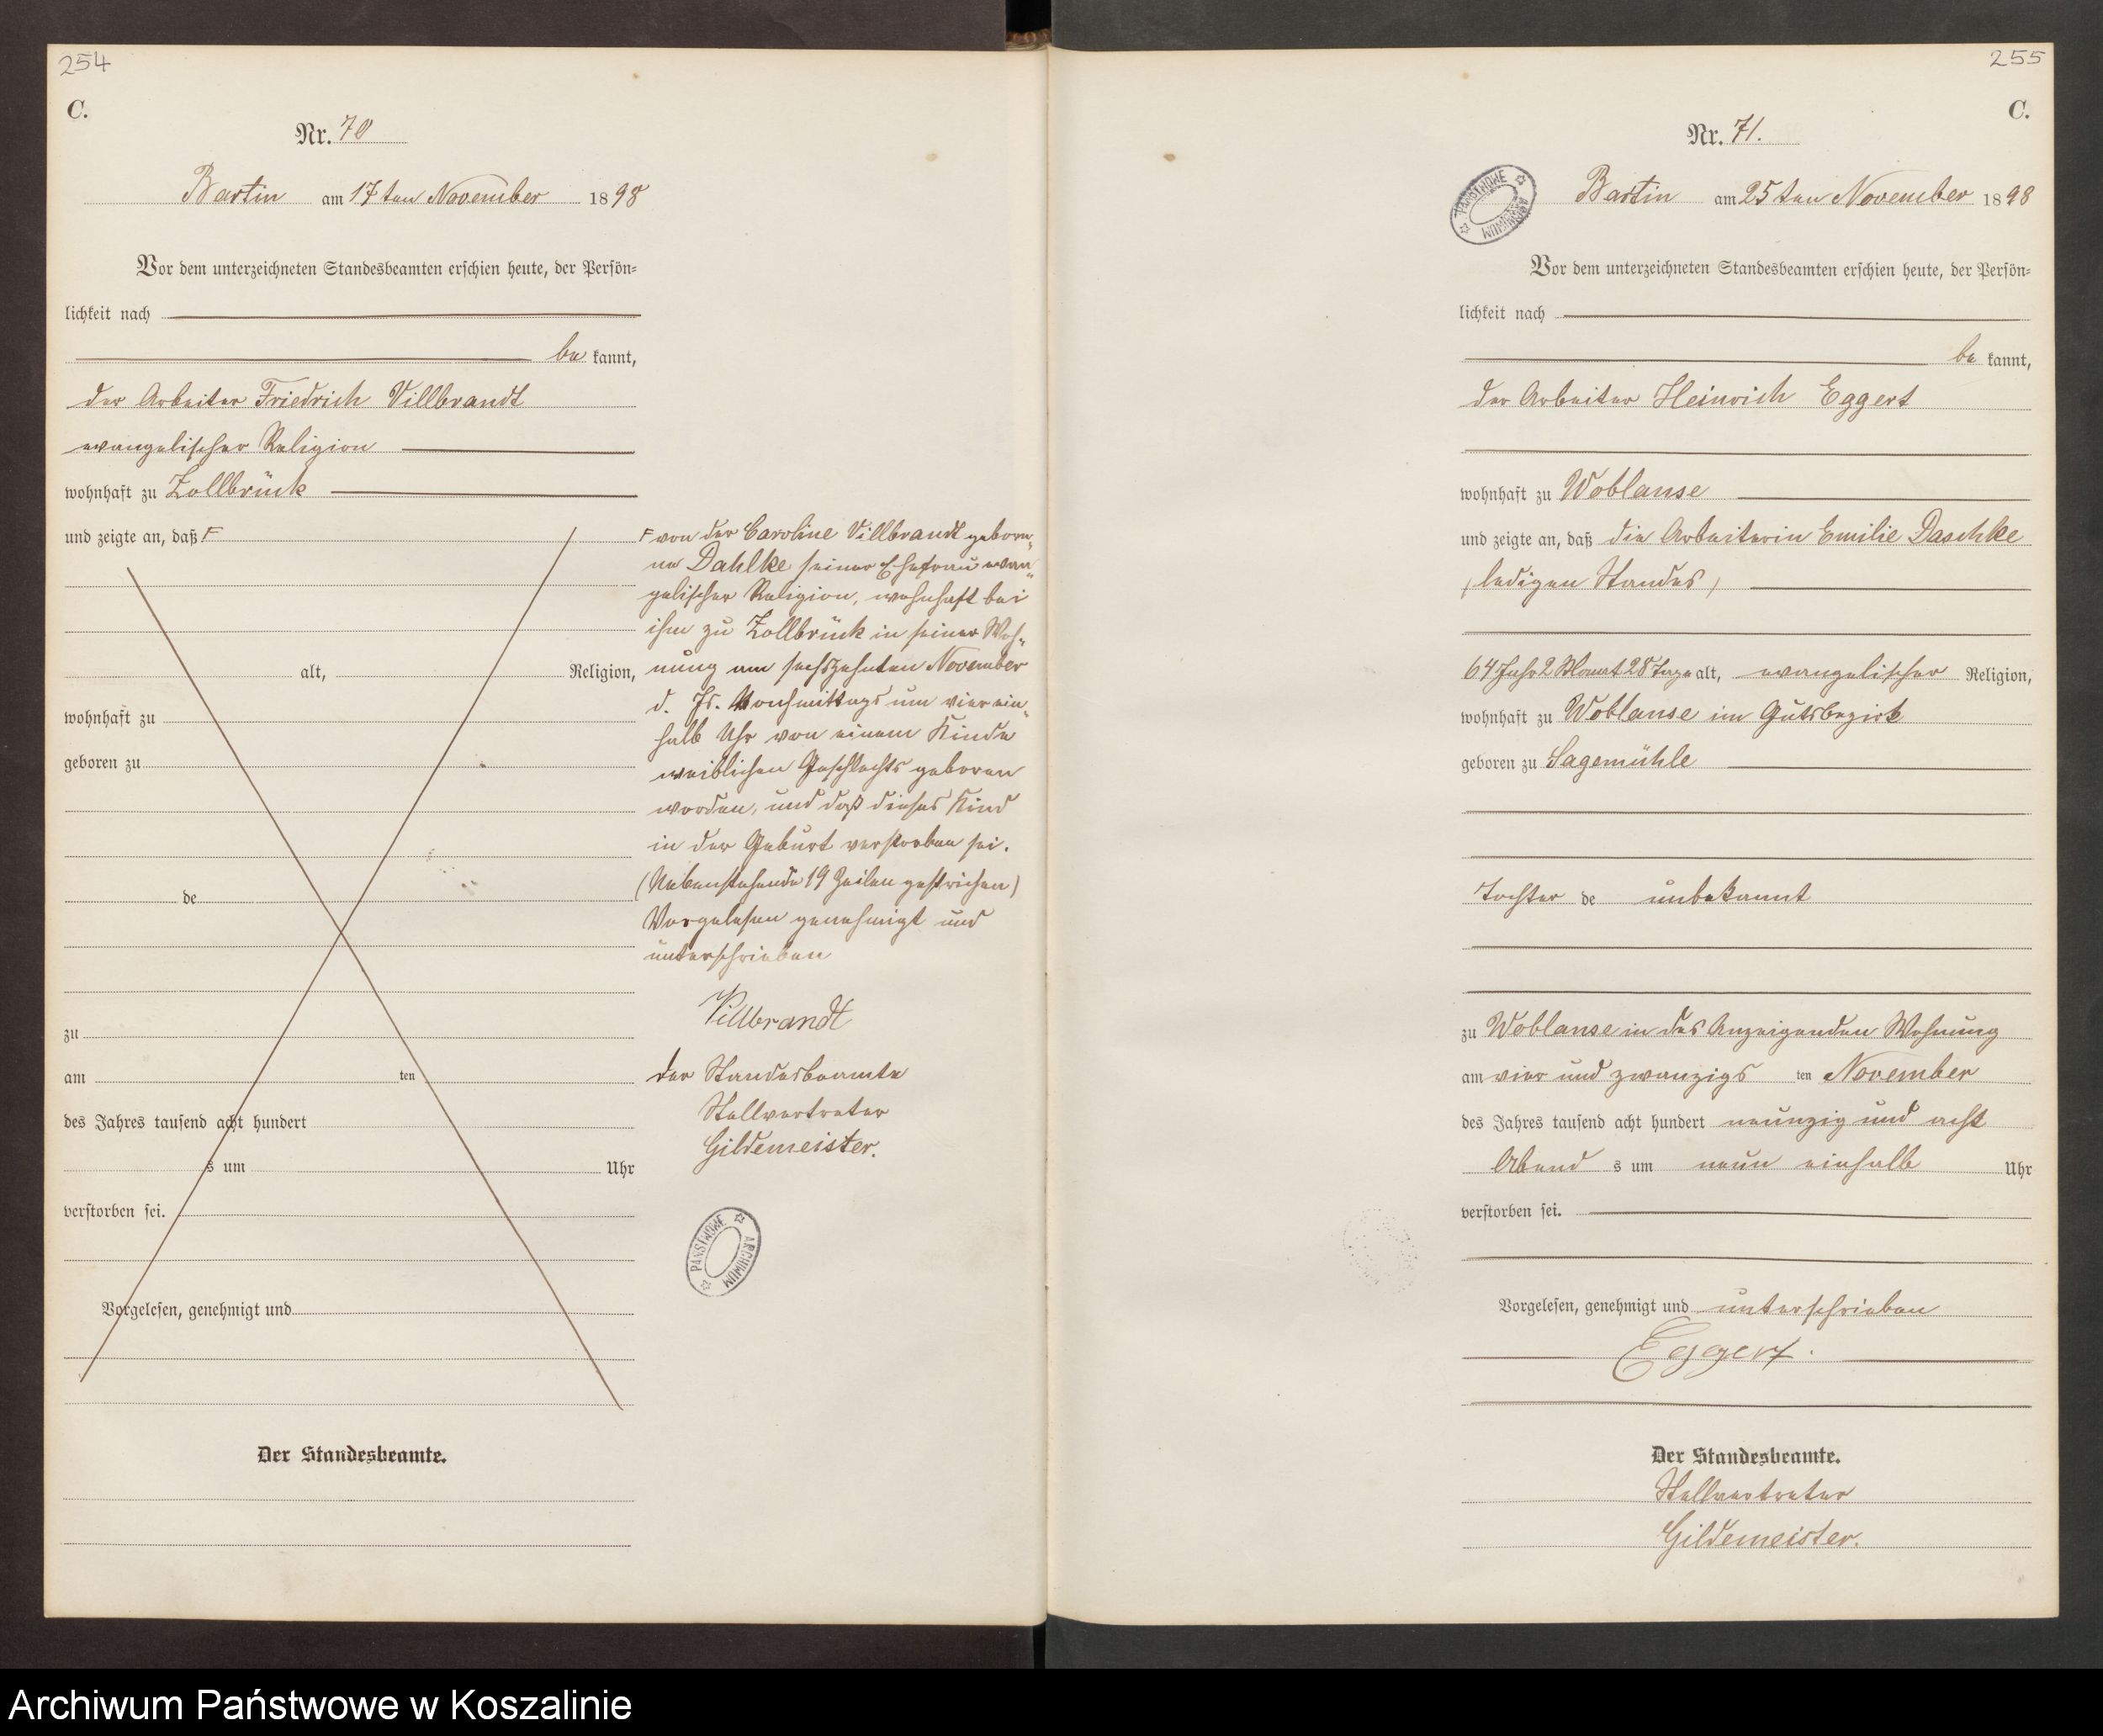 254
C.
Nr. 70
Bartin am 17ten November 1898
Vor dem unterzeichneten Standesbeamten erschien heute, der Persön=
lichkeit nach
be kannt,
der Arbeiter Friedrich Villbrandt
evangelischer Religion
wohnhaft zu Zollbrück
und zeigte an, daß F
alt, Religion,
wohnhaft zu
geboren zu
de
zu
am ten
des Jahres tausend acht hundert
s um Uhr
verstorben sei.
Vorgelesen, genehmigt und
Der Standesbeamte.
F von der Caroline Villbrandt gebore„
ne Dahlke seiner Ehefrau evan„
gelischer Religion, wohnhaft bei
ihm zu Zollbrück in seiner Woh„
nung am sechszehnten November
d. Js. Nachmittags um vier ein„
halb Uhr von einem Kinde
weiblichen Geschlechts geboren
worden, und daß dieses Kind
in der Geburt verstorben sei.
(Nebenstehende 19 Zeilen gestrichen)
Vorgelesen genehmigt und
unterschrieben
Villbrandt
der Standesbeamte
Stellvertreter
Gildemeister.
PAŃSTWOWE ARCHIWUM
255
C.
Nr. 71.
PAŃSTWOWE ARCHIWUM
Bartin am 25ten November 1898
Vor dem unterzeichneten Standesbeamten erschien heute, der Persön=
lichkeit nach
be kannt,
der Arbeiter Heinrich Eggert
wohnhaft zu Woblanse
und zeigte an, daß die Arbeiterin Emilie Daschke
(ledigen Standes)
64 Jahr 2 Monat 28 Tage alt, evangelischer Religion,
wohnhaft zu Woblanse im Gutsbezirk
geboren zu Sagemühle
Tochter de unbekannt
zu Woblanse in des Anzeigenden Wohnung
am vier und zwanzigs ten November
des Jahres tausend acht hundert neunzig und acht
Abend s um neun einhalb Uhr
verstorben sei.
Vorgelesen, genehmigt und unterschrieben
Eggert.
Der Standesbeamte.
Stellvertreter
Gildemeister.
Archiwum Państwowe w Koszalinie